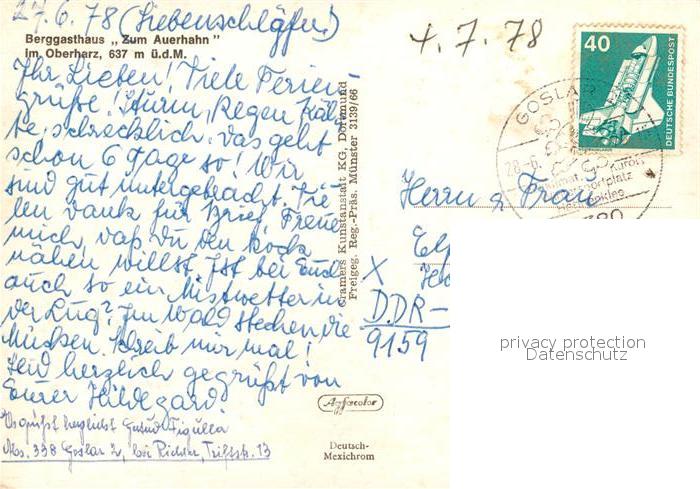 27.6.78 (Siebenschläfer)
Berggasthaus „Zum Auerhahn"
im Oberharz, 637 m ü.d.M.
Ihr Lieben! Viele Ferien-
grüße! Sturm, Regen Käl-
te, schrecklich. Das geht
schon 6 Tage so! Wir
sind gut untergebracht. Vie-
len Dank für Brief, Freue
mich, daß Du den Rock
nähen willst. Ist bei Euch
auch so ein Mistwetter in
der Lug? Im Wald stechen die
Mücken. Schreib mir mal!
Seid herzlich gegrüßt von
Eurer Hildegard.
Es grüßt herzlichst
Abs. 338 Goslar 2, bei Richter, Triftstr. 13
Cramers Kunstanstalt KG, Dortmund
Freigeg. Reg.-Präs. Münster 3139/66
Agfacolor
Deutsch-
Mexichrom
4.7.78
40
DEUTSCHE BUNDESPOST
GOSLAR
28.-6.
Herrn u Frau
X
DDR-
9159
privacy protection
Datenschutz